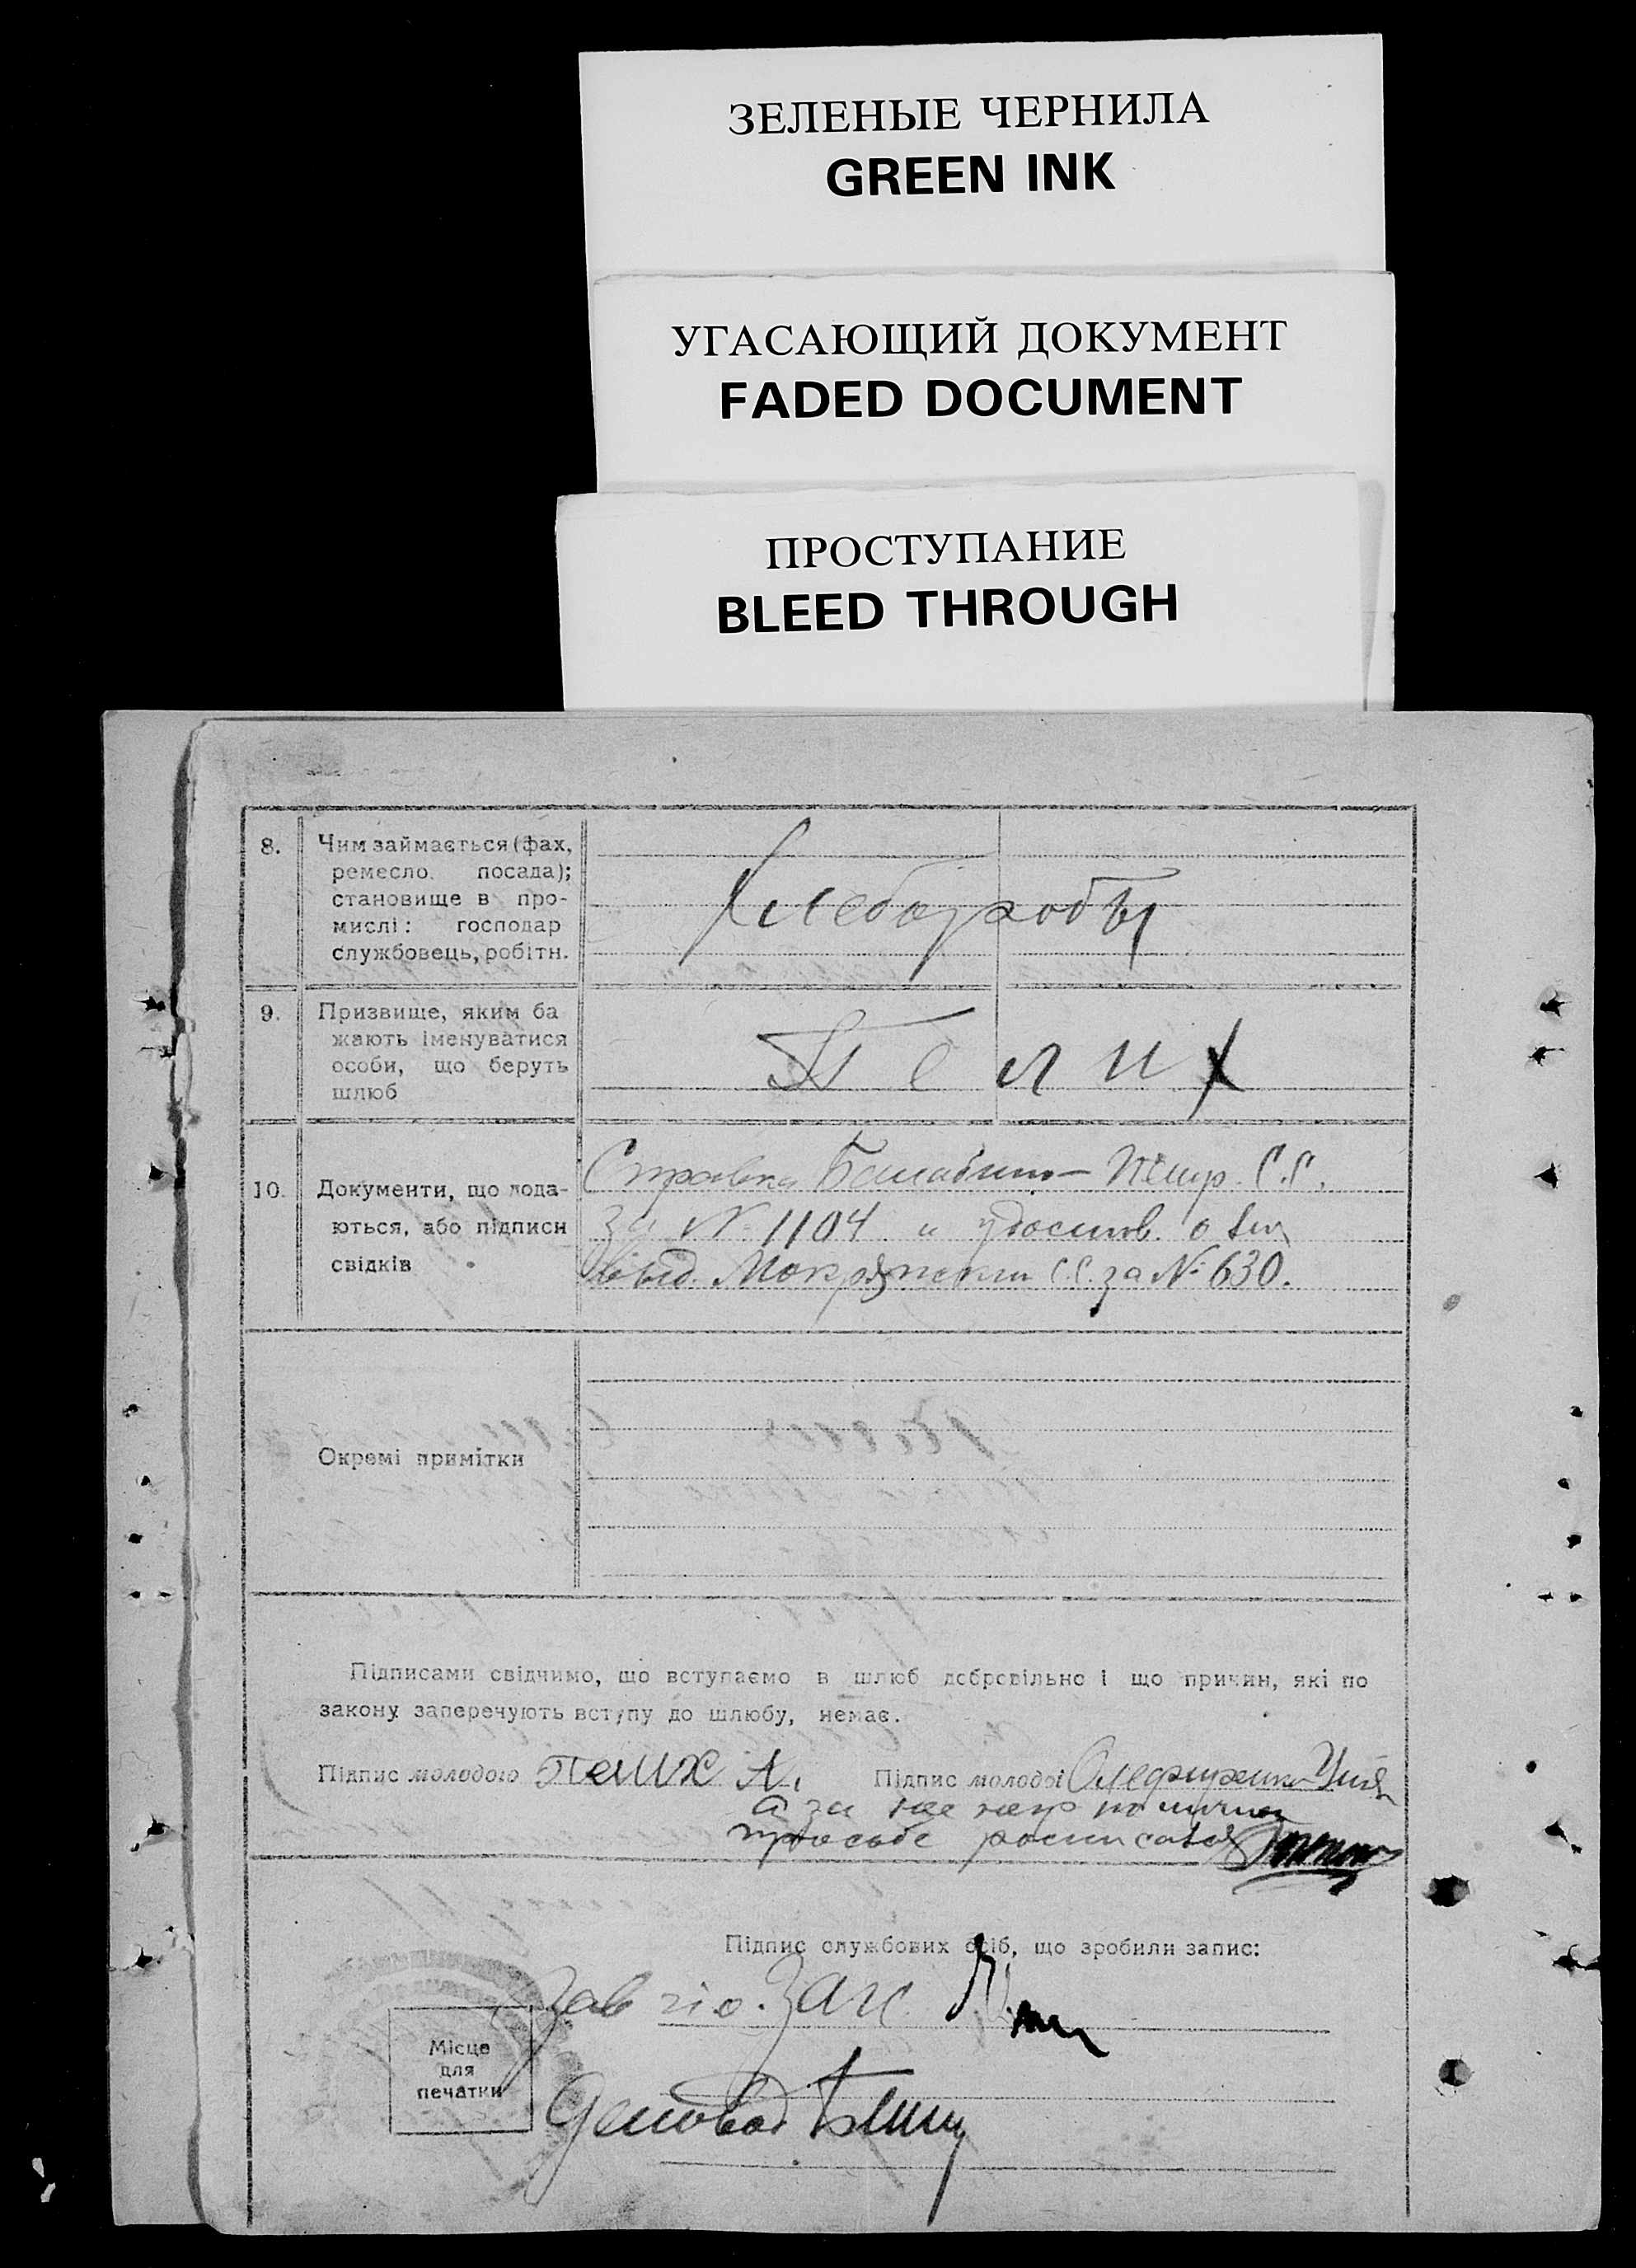 ЗЕЛЕНЫЕ ЧЕРНИЛА
GREEN INK
УГАСАЮЩИЙ ДОКУМЕНТ
FADED DOCUMENT
ПРОСТУПАНИЕ
BLEED THROUGH
8. Чим займається (фах,
ремесло. посада);
становище в про-
мислі: господар
службовець, робітн.
Хлеборобы
9. Призвище, яким ба
жають іменуватися
особи, що беруть
шлюб
Пелих
10. Документи, що пода-
ються, або підписи
свідків
Справка Балабино- Петр. С.С.
за № 1104 и удостов.
выд. С.С. за № 630.
Окремі примітки
Підписами свідчимо, що вступаємо в шлюб добровільно і що причин, які по
закону заперечують вступу до шлюбу, немає.
Підпис молодого Пелих А. Підпис молодої
а за нее негр по личной
просьбе росписался
Підпис службових осіб, що зробили запис:
Зав ЗАГС
Місце
для
печатки
Деловод